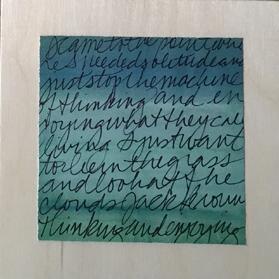 I came to the point whe
re I needed solitude and
just stop the machine
of thinking and en
joying what they call
living I just want
to lie in the grass
and look at the
clouds Jack Kerouac
thinking and enjoying